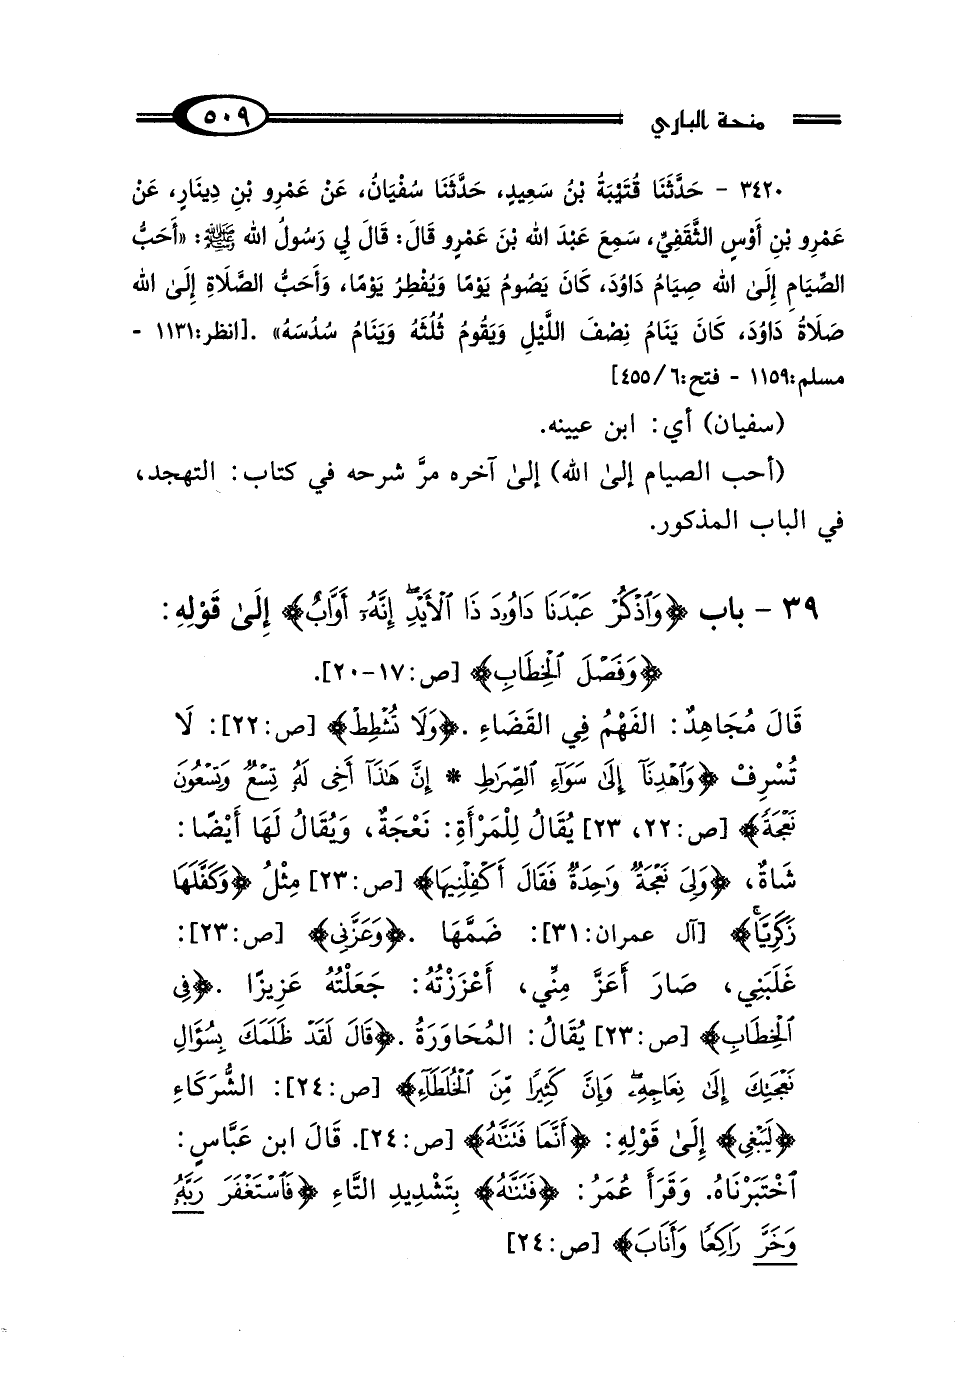 منحة الباري ٥٠٩
٣٤٢٠ - حَدَّثَنَا قُتَيْبَةُ بْنُ سَعِيدٍ، حَدَّثَنَا سُفْيَانُ، عَنْ عَمْرِو بْنِ دِينَارٍ، عَنْ
عَمْرِو بْنِ أَوْسٍ الثَّقَفِيِّ، سَمِعَ عَبْدَ الله بْنَ عَمْرٍو قَالَ: قَالَ لِي رَسُولُ الله ﷺ: «أَحَبُّ
الصِّيَامِ إِلَىٰ الله صِيَامُ دَاوُدَ، كَانَ يَصُومُ يَوْمًا وَيُفْطِرُ يَوْمًا، وَأَحَبُّ الصَّلَاةِ إِلَىٰ الله
صَلَاةُ دَاوُدَ، كَانَ يَنَامُ نِصْفَ اللَّيْلِ وَيَقُومُ ثُلُثَهُ وَيَنَامُ سُدُسَهُ» .[انظر:١١٣١ -
مسلم:١١٥٩ - فتح:٦/ ٤٥٥]
(سفيان) أي: ابن عيينه.
(أحب الصيام إلىٰ الله) إلىٰ آخره مرَّ شرحه في كتاب: التهجد،
في الباب المذكور.
٣٩ - باب ﴿وَٱذْكُرْ عَبْدَنَا دَاوُۥدَ ذَا ٱلْأَيْدِۖ إِنَّهُۥٓ أَوَّابٌ﴾ إِلَىٰ قَوْلِهِ:
﴿وَفَصْلَ ٱلْخِطَابِ﴾ [ص:١٧-٢٠].
قَالَ مُجَاهِدٌ: الفَهْمُ فِي القَضَاءِ .﴿وَلَا تُشْطِطْ﴾ [ص:٢٢]: لَا
تُسْرِفْ ﴿وَٱهْدِنَآ إِلَىٰ سَوَآءِ ٱلصِّرَٰطِ * إِنَّ هَٰذَآ أَخِى لَهُۥ تِسْعٌ وَتِسْعُونَ
نَعْجَةً﴾ [ص:٢٢، ٢٣] يُقَالُ لِلْمَرْأَةِ: نَعْجَةٌ، وَيُقَالُ لَهَا أَيْضًا:
شَاةٌ، ﴿وَلِىَ نَعْجَةٌ وَٰحِدَةٌ فَقَالَ أَكْفِلْنِيهَا﴾ [ص:٢٣] مِثْلُ ﴿وَكَفَّلَهَا
زَكَرِيَّاۚ﴾ [آل عمران:٣١]: ضَمَّهَا .﴿وَعَزَّنِى﴾ [ص:٢٣]:
غَلَبَنِي، صَارَ أَعَزَّ مِنِّي، أَعْزَزْتُهُ: جَعَلْتُهُ عَزِيزًا .﴿فِى
ٱلْخِطَابِ﴾ [ص:٢٣] يُقَالُ: المُحَاوَرَةُ .﴿قَالَ لَقَدْ ظَلَمَكَ بِسُؤَالِ
نَعْجَتِكَ إِلَىٰ نِعَاجِهِۦۖ وَإِنَّ كَثِيرًا مِّنَ ٱلْخُلَطَآءِ﴾ [ص:٢٤]: الشُّرَكَاءِ
﴿لَيَبْغِى﴾ إِلَىٰ قَوْلِهِ: ﴿أَنَّمَا فَتَنَّٰهُ﴾ [ص:٢٤]. قَالَ ابن عَبَّاسٍ:
ٱخْتَبَرْنَاهُ. وَقَرَأَ عُمَرُ: ﴿فَتَنَّٰهُ﴾ بِتَشْدِيدِ التَّاءِ ﴿فَٱسْتَغْفَرَ رَبَّهُۥ
وَخَرَّ رَاكِعًا وَأَنَابَ﴾ [ص:٢٤]